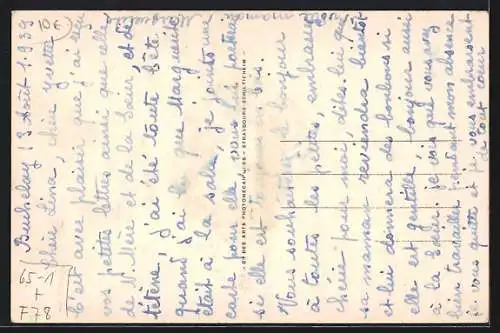 Buchelay 13 Août 1939
Chère Lina, chère Yvette
C'est avec plaisir que j'ai reçu
vos petites lettres ainsi que celle
de M. Mère et de la Sœur, et de
tétène, j'ai été toute bête
quand j'ai lu que Marguerite
était à la salle, je joints une
carte pour elle, vous
si elle est ici.
Vous souhaiterez le bonjour
à toutes les petites, embrassez
chérie pour moi, dites lui que
sa maman reviendra bientôt
et lui donnera des bonbons si
elle est gentille. Le bonjour aussi
à la Sœur, je vois que vous avez
bien travaillé pendant mon absence
je vous quitte et je vous embrassent
de tout cœur
votre maman
10€
65-1
+
F78